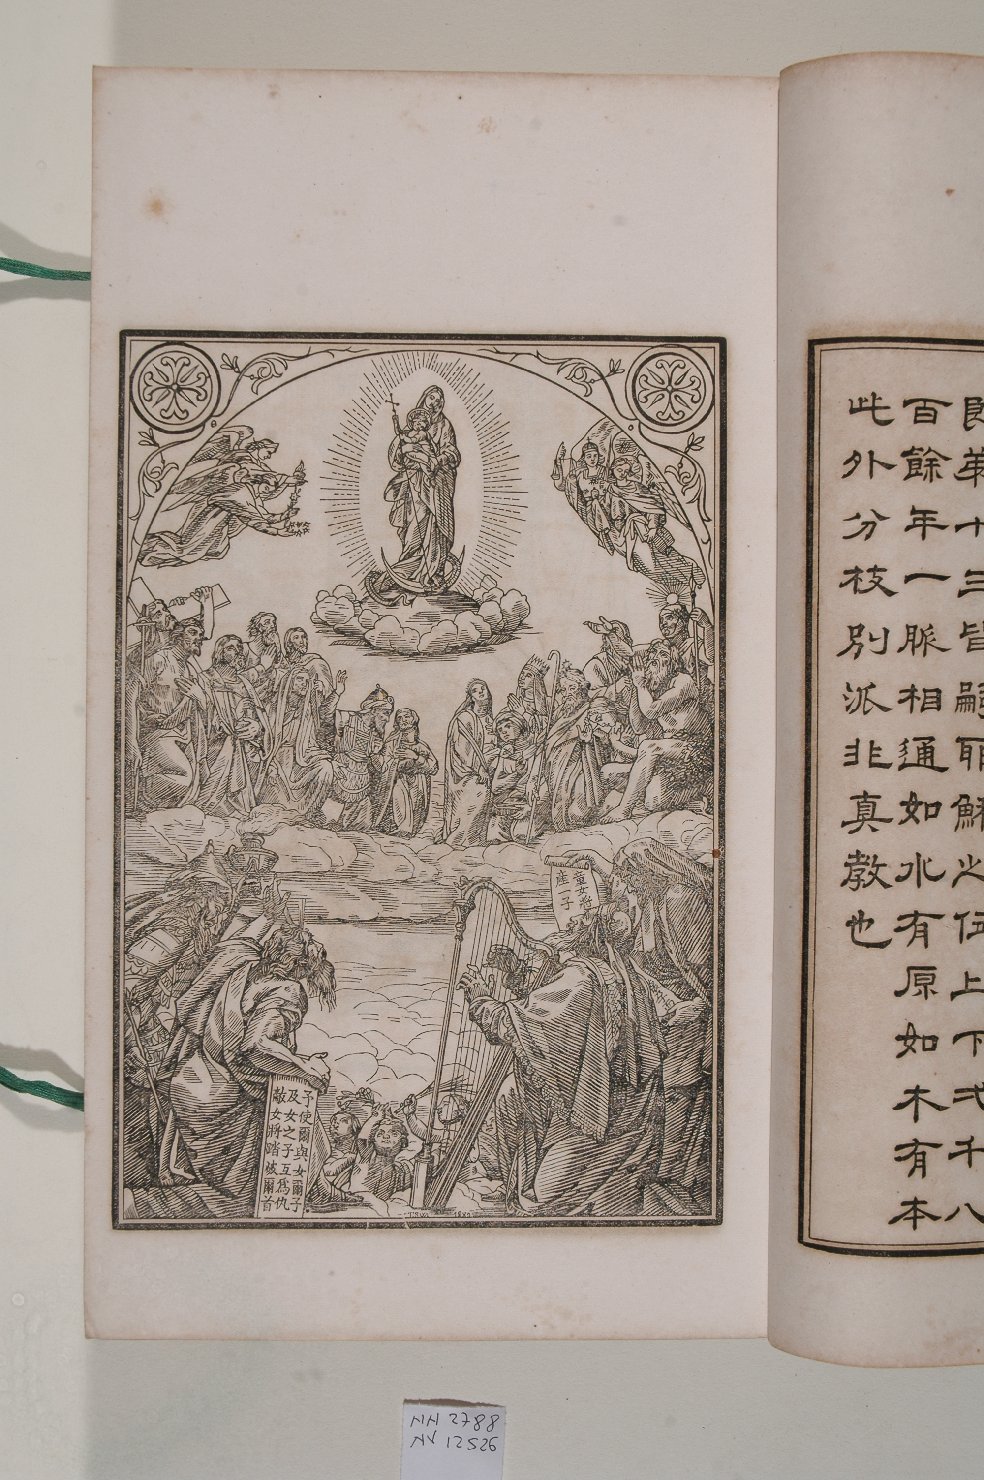 即第十三皆嗣耶穌之位上下弍千八
百餘年一脈相通如水有原如木有本
此外分枝別派非真教也
童女將
產子
予使爾與女爾子
及女之子互為仇
敵女將踏破爾首
NH 2788
NV 12526